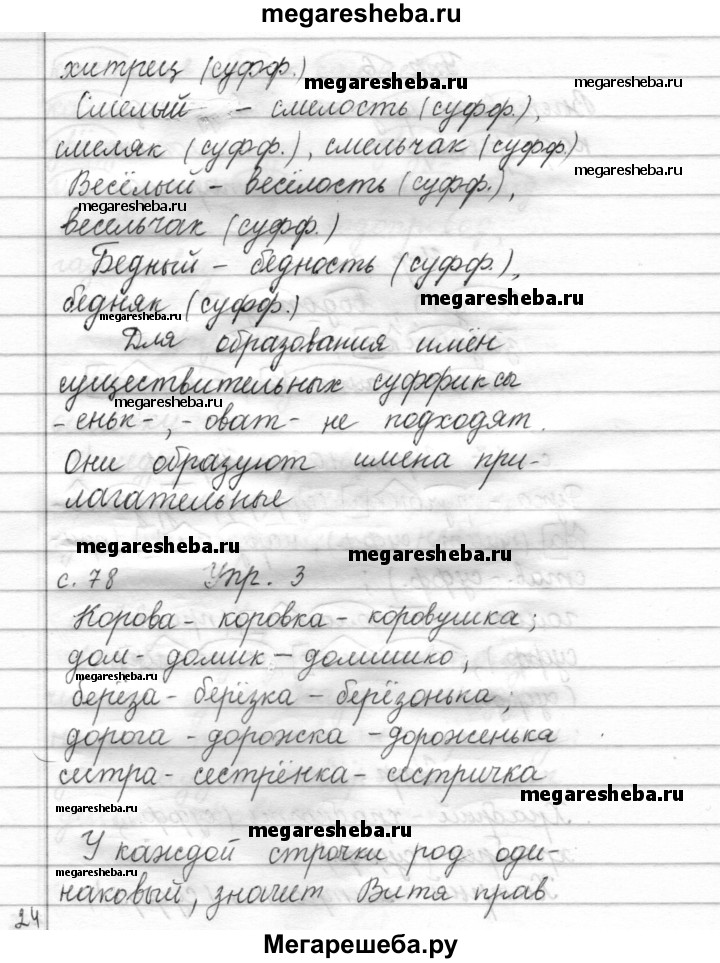 megaresheba.ru
хитрец (суфф.)
megaresheba.ru
megaresheba.ru
Смелый - смелость (суфф.),
смеляк (суфф.), смельчак (суфф.)
megaresheba.ru
Весёлый - весёлость (суфф.),
megaresheba.ru
весельчак (суфф.)
Бедный - бедность (суфф.),
бедняк (суфф.)
megaresheba.ru
megaresheba.ru
Для образования имён
существительных суффиксы
megaresheba.ru
-еньк-, -оват- не подходят.
Они образуют имена при-
лагательные
megaresheba.ru
megaresheba.ru
с. 78 Упр. 3
Корова - коровка - коровушка;
дом - домик - домишко;
megaresheba.ru
берёза - берёзка - берёзонька;
дорога - дорожка - дороженька
сестра - сестрёнка - сестричка
megaresheba.ru
megaresheba.ru
megaresheba.ru
У каждой строчки род оди-
megaresheba.ru
наковый, значит Витя прав
24
Мегарешеба.ру